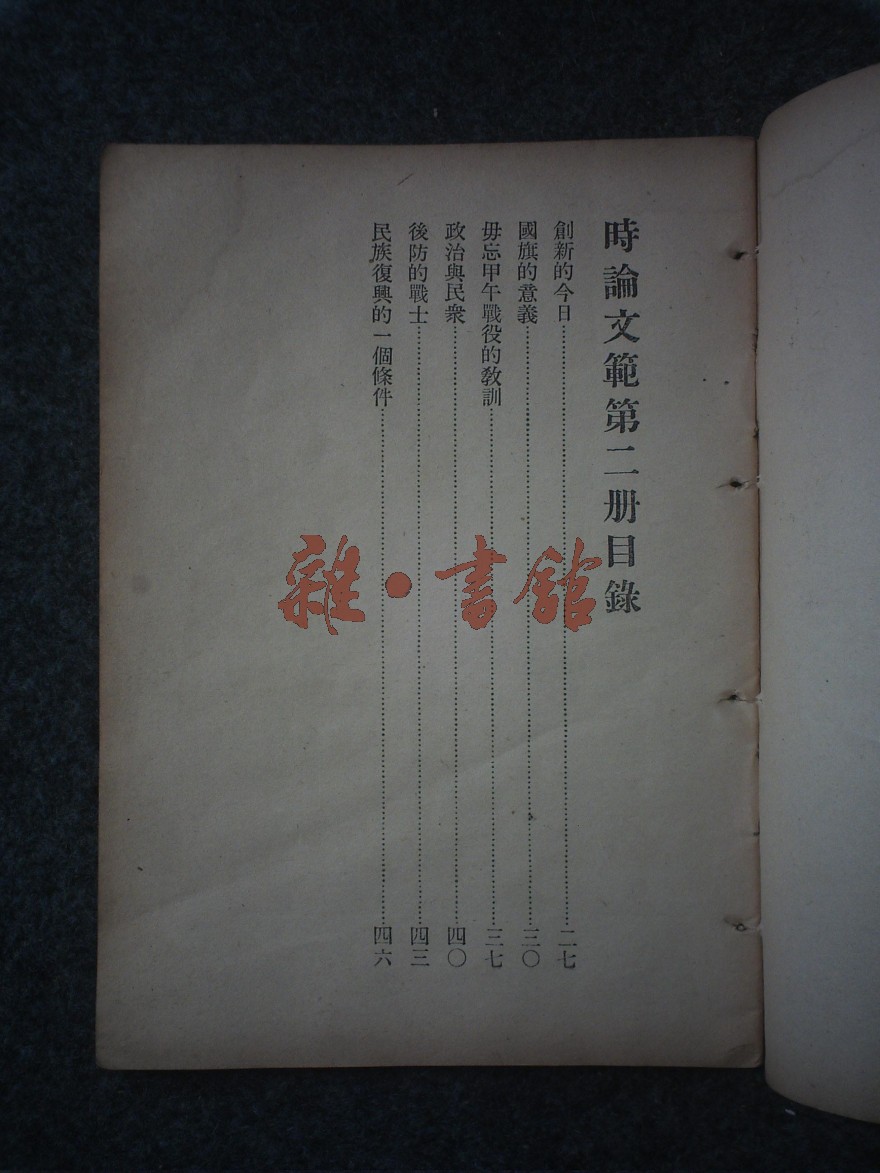 時論文範第二册目錄
創新的今日……二七
國旗的意義……三〇
毋忘甲午戰役的教訓……三七
政治與民衆……四〇
後防的戰士……四三
民族復興的一個條件……四六
雜·書館